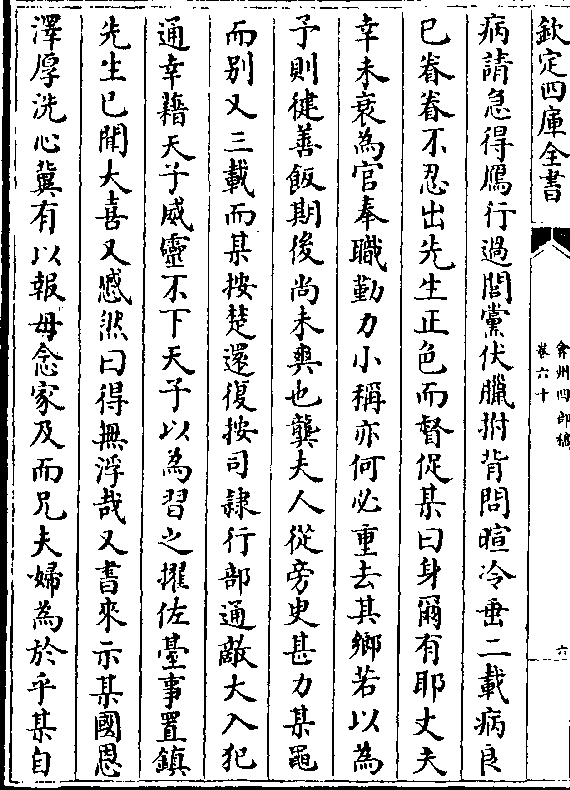 欽定四庫全書
弇州四部稿
卷六十
六
病請急得鴈行過閭黨伏臘拊背問暄冷垂二載病良
已眷眷不忍出先生正色而督促某曰身爾有耶丈夫
幸未衰為官奉職勤力小稱亦何必重去其鄉若以為
予則健善飯期後尚未興也龔夫人從旁史甚力某黽
而别又三載而某按楚還復按司隸行部通敵大入犯
通幸藉天子威靈不下天子以為習之擢佐臺事置鎮
先生已聞大喜又慼然曰得無浮哉又書來示某國恩
澤厚洗心冀有以報毋念家及而兄夫婦為於乎某自